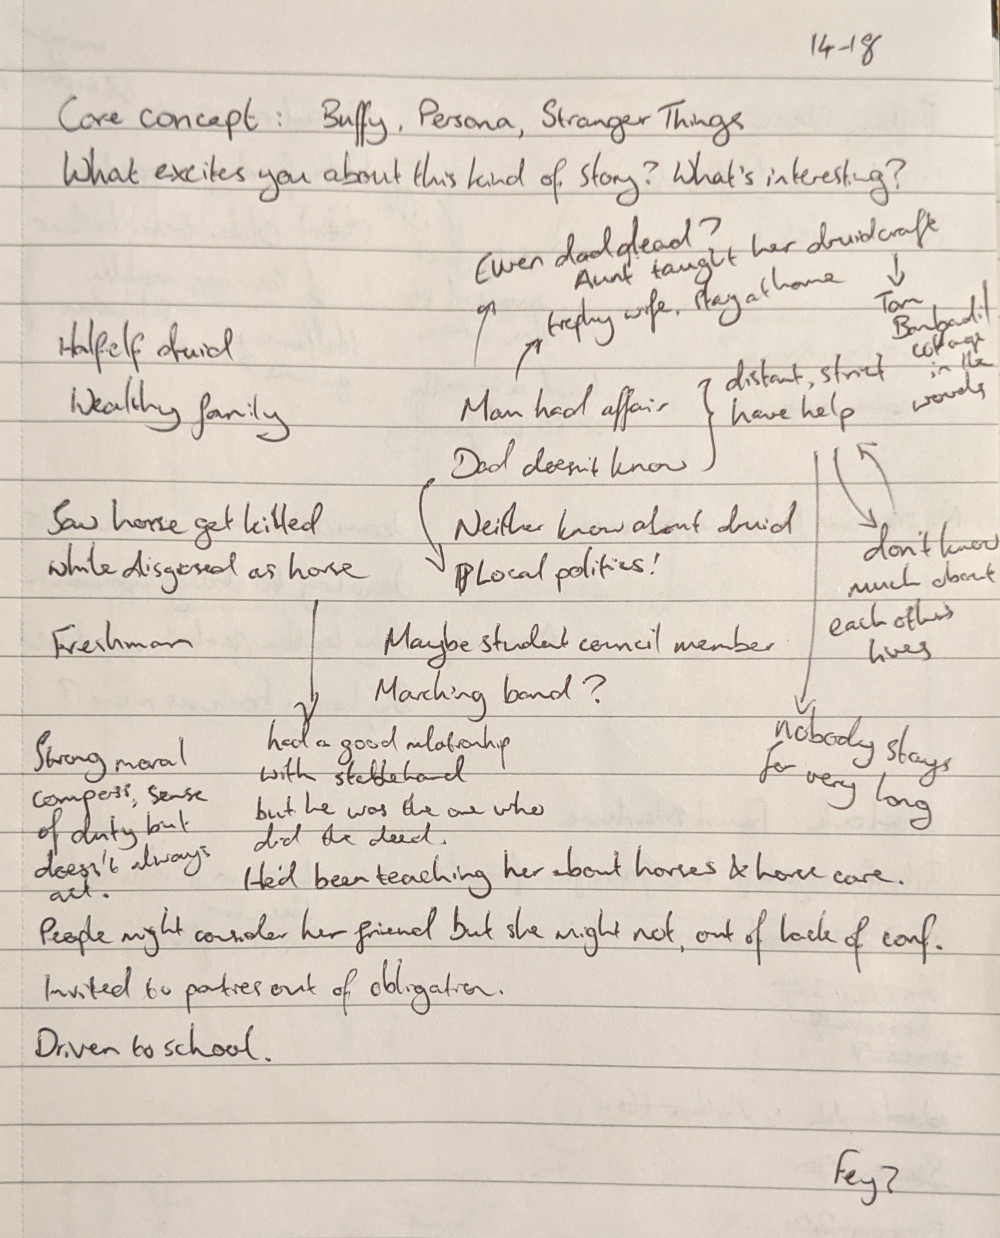 14-18
Core concept: Buffy, Persona, Stranger Things
What excites you about this kind of story? What's interesting?
Elven dad dead?
Aunt taught her druidcraft
trophy wife, stay at home
Tom
Bombadil
cottage
in the
woods
Half elf druid
Wealthy family
Mam had affair
Dad doesn't know
distant, strict
have help
Saw horse get killed
while disguised as horse
Neither know about druid
Local politics!
don't know
much about
each other's
lives
Freshman
Maybe student council member
Marching band?
nobody stays
for very long
Strong moral
compass, sense
of duty but
doesn't always
act.
had a good relationship
with stablehand
but he was the one who
did the deed.
He'd been teaching her about horses & horse care.
People might consider her friend but she might not, out of lack of conf.
Invited to parties out of obligation.
Driven to school.
Fey?